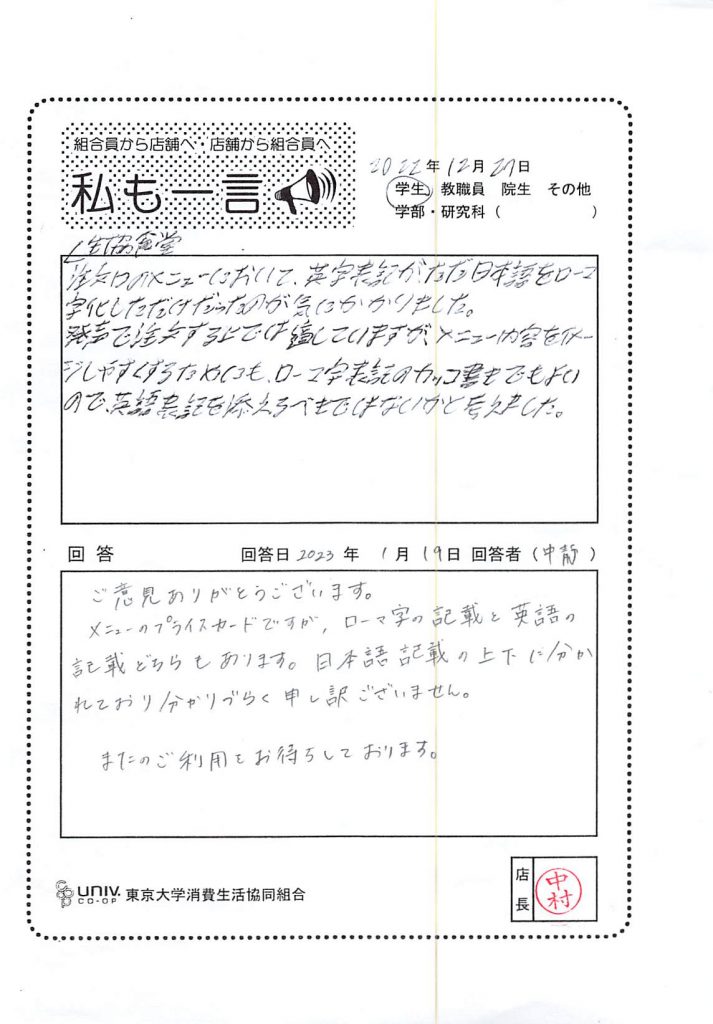 組合員から店舗へ・店舗から組合員へ
私も一言
2022年12月27日
学生 教職員 院生 その他
学部・研究科（ ）
生協食堂
注文口のメニューにおいて、英字表記が、ただ日本語をローマ
字化しただけだったのが気にかかりました。
発声で注文する上では適していますが、メニュー内容をイメー
ジしやすくするためにも、ローマ字表記のカッコ書きでもよい
ので、英語表記を添えるべきではないかと考えました。
回答 回答日2023年 1月19日 回答者（中静）
ご意見ありがとうございます。
メニューのプライスカードですが、ローマ字の記載と英語の
記載どちらもあります。日本語記載の上下に分か
れており分かりづらく申し訳ございません。
またのご利用をお待ちしております。
UNIV.
CO-OP
東京大学消費生活協同組合
店長
中村